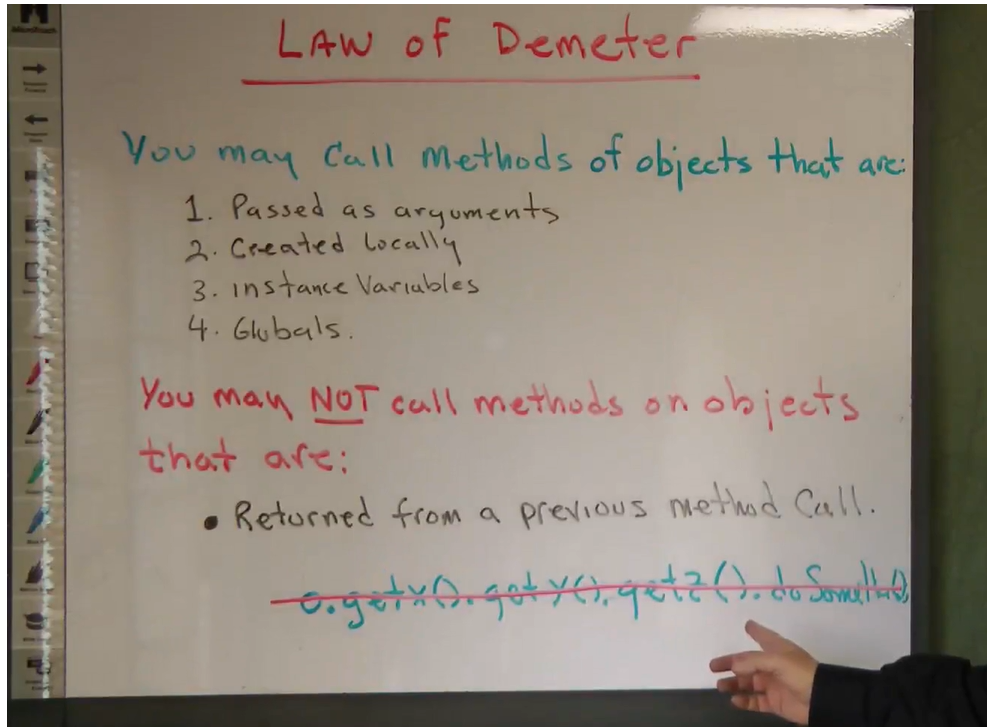 LAW of Demeter
You may Call methods of objects that are:
1. Passed as arguments
2. Created locally
3. instance Variables
4. Globals.
You may NOT call methods on objects
that are:
• Returned from a previous method Call.
o.getX().getY().getZ().doSomething()